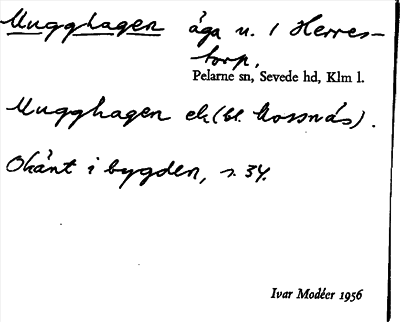 Mugghagen åga n. 1 Herres-
torp.
Pelarne sn, Sevede hd, Klm l.
Mugghagen ek (bl. Mossnäs).
Okänt i bygden, s. 34.
Ivar Modéer 1956